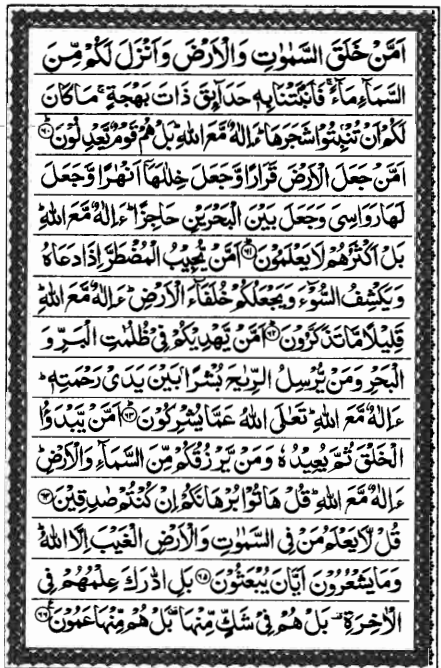 اَمَّنْ خَلَقَ السَّمٰوٰتِ وَالْاَرْضَ وَاَنْزَلَ لَكُمْ مِّنَ
السَّمَآءِ مَآءً ۚ فَاَنْۢبَتْنَا بِهٖ حَدَآئِقَ ذَاتَ بَهْجَةٍ ۚ مَا كَانَ
لَكُمْ اَنْ تُنْۢبِتُوْا شَجَرَهَا ؕ ءَاِلٰهٌ مَّعَ اللّٰهِ ؕ بَلْ هُمْ قَوْمٌ يَّعْدِلُوْنَ ؕ﴿۶۰﴾
اَمَّنْ جَعَلَ الْاَرْضَ قَرَارًا وَّجَعَلَ خِلٰلَهَاۤ اَنْهٰرًا وَّجَعَلَ
لَهَا رَوَاسِىَ وَجَعَلَ بَيْنَ الْبَحْرَيْنِ حَاجِزًا ؕ ءَاِلٰهٌ مَّعَ اللّٰهِ ؕ
بَلْ اَكْثَرُهُمْ لَا يَعْلَمُوْنَ ؕ﴿۶۱﴾ اَمَّنْ يُّجِيْبُ الْمُضْطَرَّ اِذَا دَعَاهُ
وَيَكْشِفُ السُّوْٓءَ وَيَجْعَلُكُمْ خُلَفَآءَ الْاَرْضِ ؕ ءَاِلٰهٌ مَّعَ اللّٰهِ ؕ
قَلِيْلًا مَّا تَذَكَّرُوْنَ ؕ﴿۶۲﴾ اَمَّنْ يَّهْدِيْكُمْ فِىْ ظُلُمٰتِ الْبَرِّ وَ
الْبَحْرِ وَمَنْ يُّرْسِلُ الرِّيٰحَ بُشْرًۢا بَيْنَ يَدَىْ رَحْمَتِهٖ ؕ
ءَاِلٰهٌ مَّعَ اللّٰهِ ؕ تَعٰلَى اللّٰهُ عَمَّا يُشْرِكُوْنَ ؕ﴿۶۳﴾ اَمَّنْ يَّبْدَؤُا
الْخَلْقَ ثُمَّ يُعِيْدُهٗ وَمَنْ يَّرْزُقُكُمْ مِّنَ السَّمَآءِ وَالْاَرْضِ ؕ
ءَاِلٰهٌ مَّعَ اللّٰهِ ؕ قُلْ هَاتُوْا بُرْهَانَكُمْ اِنْ كُنْتُمْ صٰدِقِيْنَ ﴿۶۴﴾
قُلْ لَّا يَعْلَمُ مَنْ فِى السَّمٰوٰتِ وَالْاَرْضِ الْغَيْبَ اِلَّا اللّٰهُ ؕ
وَمَا يَشْعُرُوْنَ اَيَّانَ يُبْعَثُوْنَ ﴿۶۵﴾ بَلِ ادّٰرَكَ عِلْمُهُمْ فِى
الْاٰخِرَةِ ۫ بَلْ هُمْ فِىْ شَكٍّ مِّنْهَا ۫ بَلْ هُمْ مِّنْهَا عَمُوْنَ ﴿۶۶﴾